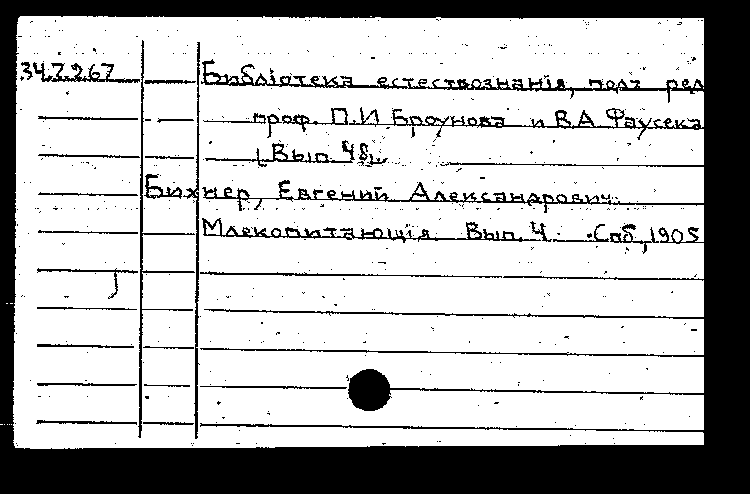 34.7.2.67 Библіотека естествознанія, подъ ред
проф. П.И Броунова и В.А Фаусека
[Вып. 48].
Бихнер, Евгений Александрович.
Млекопитающія. Вып. 4. Спб, 1905